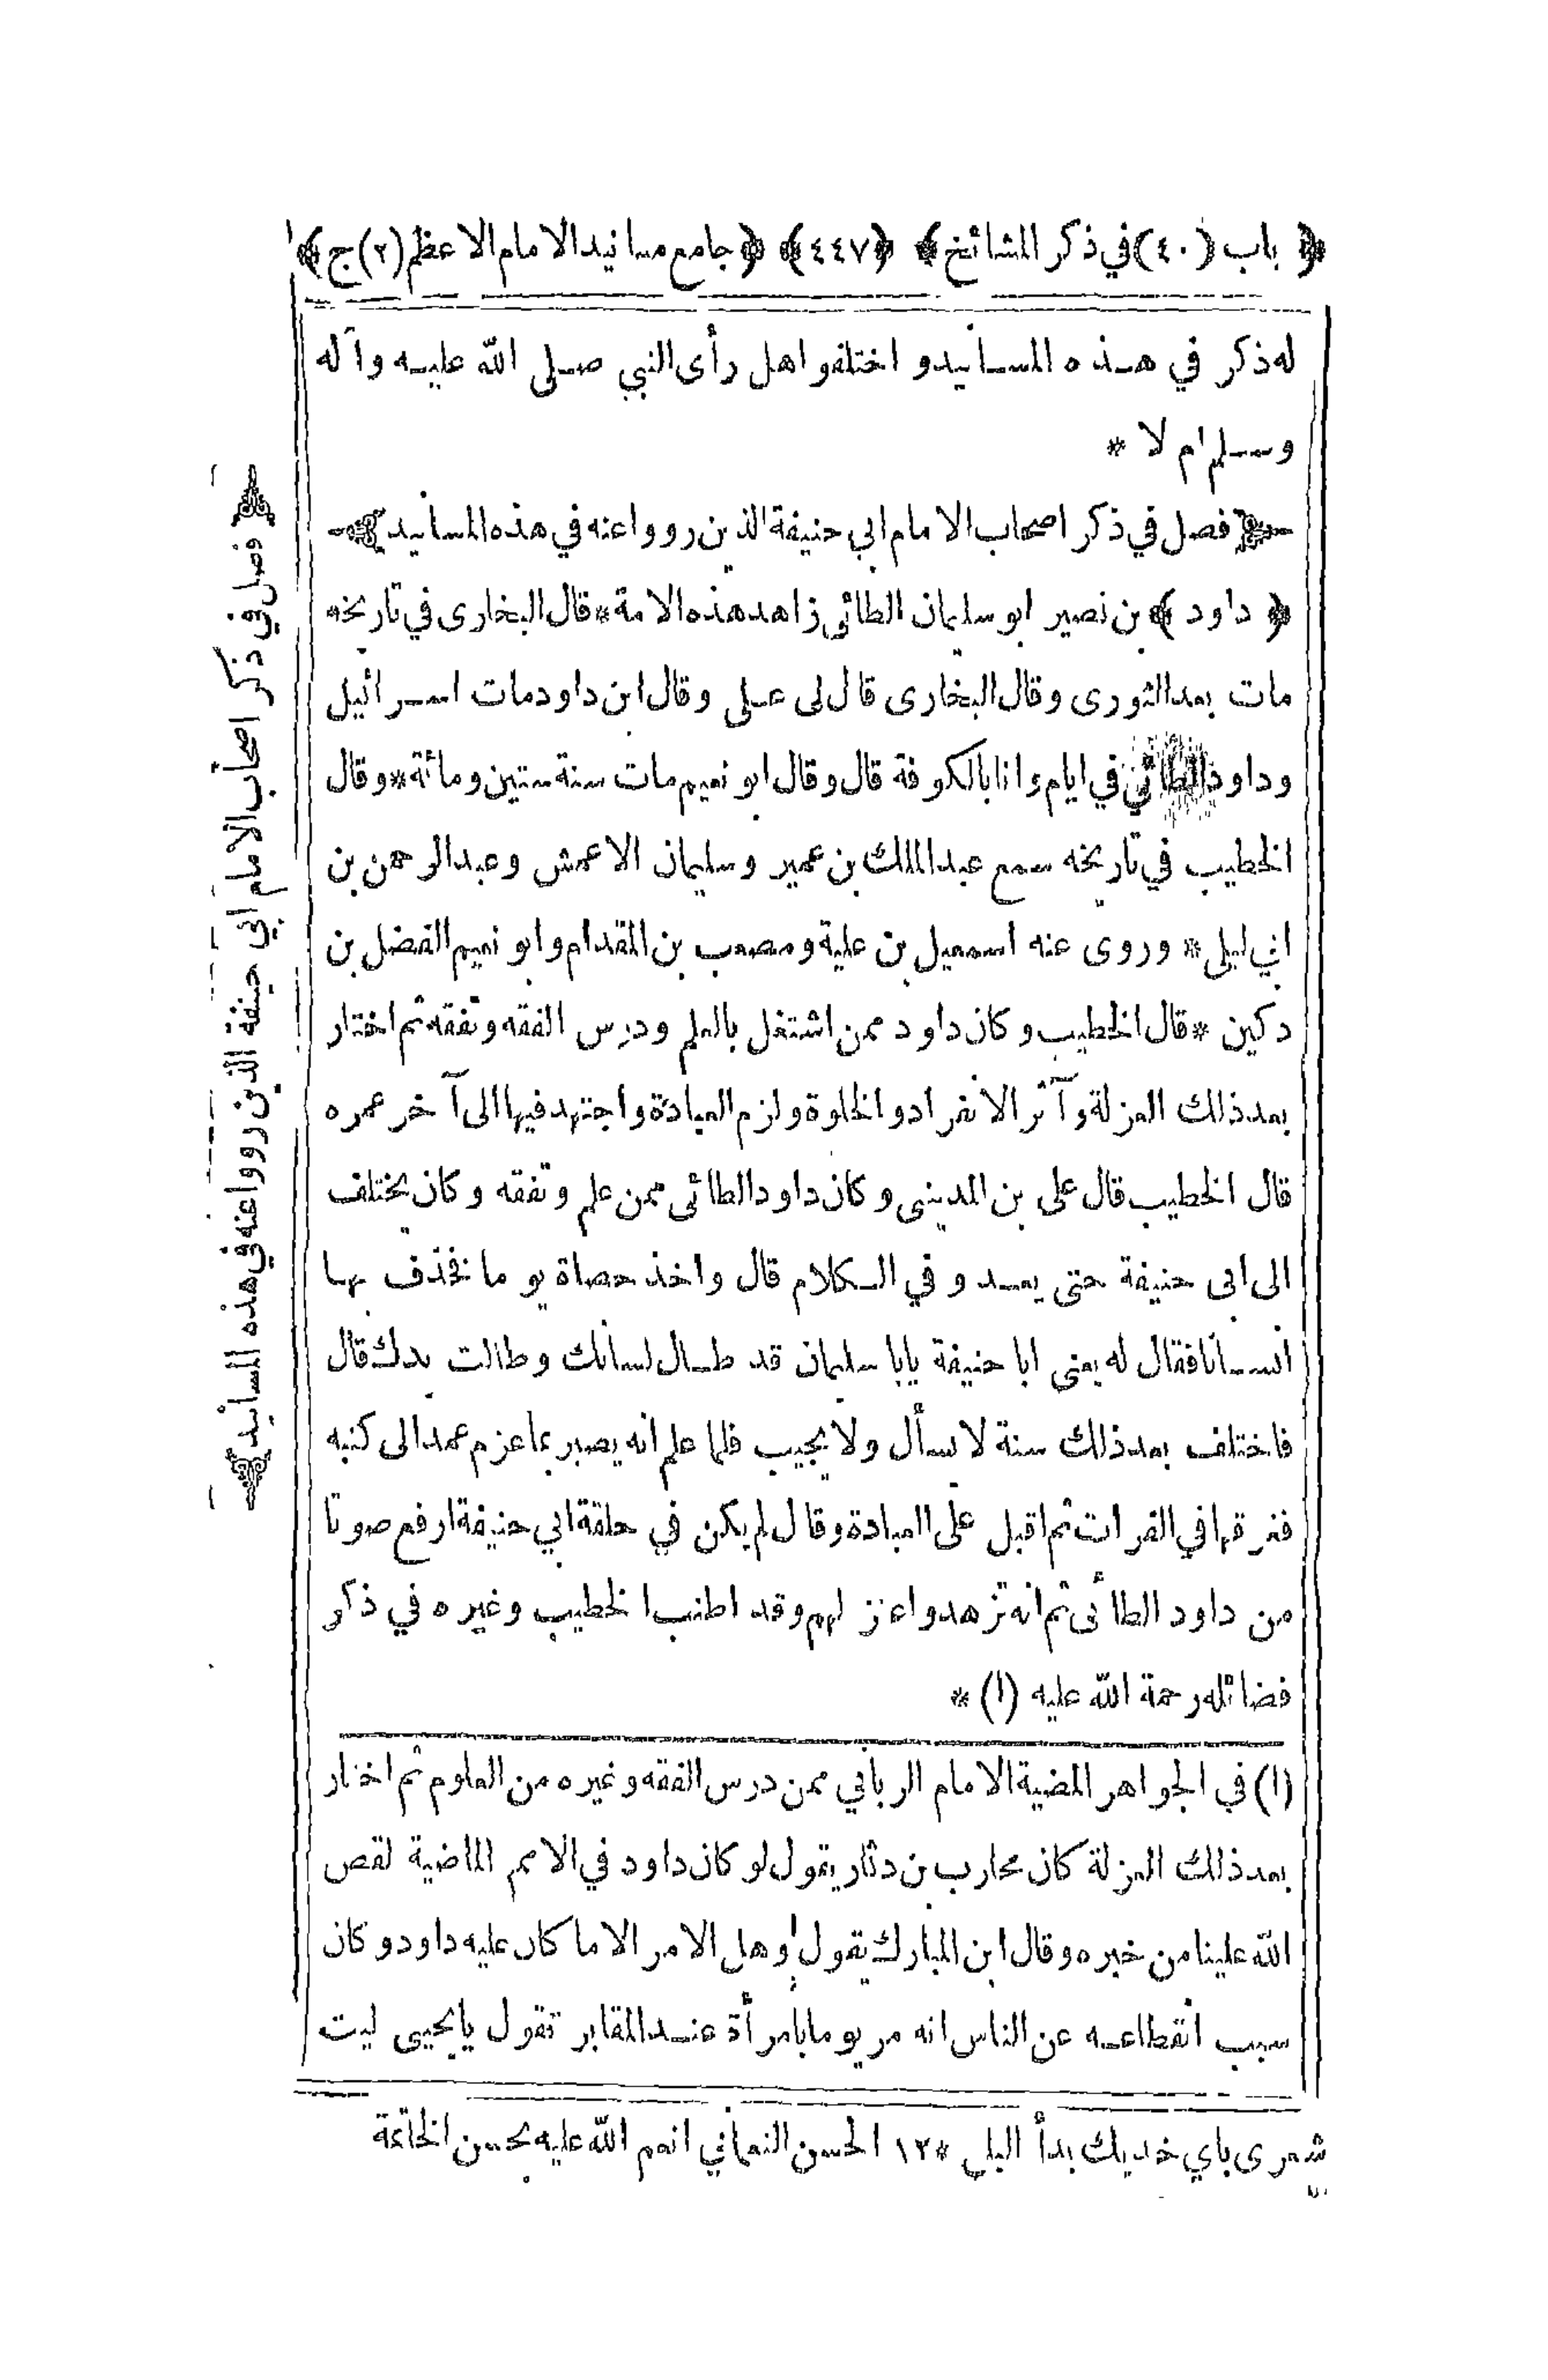 ﴿ باب (٤٠) في ذكر المشائخ ﴾ ﴿ ٤٤٧ ﴾ ﴿ جامع مسانيد الامام الاعظم (٢) ج ﴾
له ذكر في هذه المسانيد و اختلفوا هل رأى النبي صلى الله عليه وآله
وسلم ام لا *
فصل في ذكر اصحاب الامام ابي حنيفة الذين رووا عنه في هذه المسانيد
﴿ داود ﴾ بن نصير ابو سليمان الطائى زاهد هذه الامة * قال البخارى في تاريخه
مات بعد الثورى وقال البخارى قال لى على وقال ابن داود مات اسرائيل
وداود الطائى في ايام وانا بالكوفة قال وقال ابو نعيم مات سنة ستين ومائة * وقال
الخطيب في تاريخه سمع عبد الملك بن عمير وسليمان الاعمش وعبد الرحمن بن
ابي ليلى * وروى عنه اسمعيل بن علية ومصعب بن المقدام وابو نعيم الفضل بن
دكين * قال الخطيب وكان داود ممن اشتغل بالعلم ودرس الفقه وتفقه ثم اختار
بعد ذلك العزلة وآثر الانفراد والخلوة ولزم العبادة واجتهد فيها الى آخر عمره
قال الخطيب قال على بن المدينى وكان داود الطائى ممن علم وتفقه وكان يختلف
الى ابى حنيفة حتى يعد و في الكلام قال واخذ حصاة يو ما فخذف بها
انسانا فقال له يعنى ابا حنيفة يابا سليمان قد طال لسانك وطالت يدك قال
فاختلف بعد ذلك سنة لا يسأل ولا يجيب فلما علم انه يصبر عما عزم عمد الى كتبه
فغرقها في الفرات ثم اقبل على العبادة وقال لم يكن في حلقة ابي حنيفة ارفع صوتا
من داود الطائى ثم انه تزهد واعتزلهم وقد اطنب الخطيب وغيره في ذكر
فضائله رحمة الله عليه (١) *
(١) في الجواهر المضية الامام الرباني ممن درس الفقه وغيره من العلوم ثم اختار
بعد ذلك العزلة كان محارب بن دثار يقول لو كان داود في الامم الماضية لقص
الله علينا من خبره وقال ابن المبارك يقول وهل الامر الا ما كان عليه داود وكان
سبب انقطاعه عن الناس انه مر يوما بامرأة عند المقابر تقول يا يحيى ليت
شعرى باي خديك بدأ البلى * ١٢ الحسن النعماني انعم الله عليه بحسن الخاتمة
﴿ فصل في ذكر اصحاب الامام ابي حنيفة الذين رووا عنه في هذه المسانيد ﴾